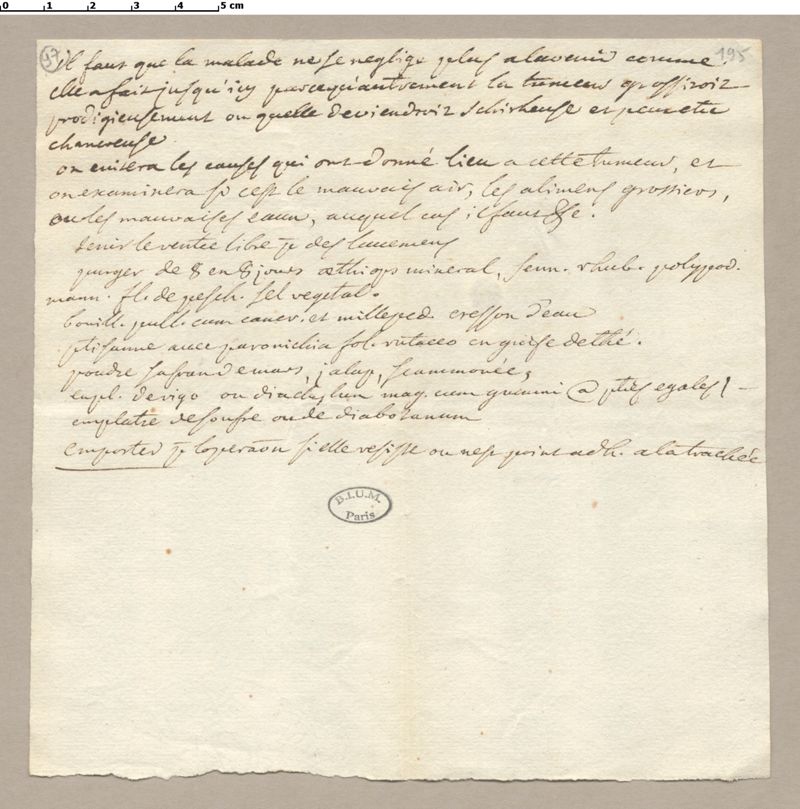 0 1 2 3 4 5 cm
97 195
il faut que la malade ne se neglige plus a lavenir comme
elle a fait jusqu'icy parcequ'autrement la tumeur grossiroit
prodigieusement ou quelle deviendroit schirheuse et peutetre
chancreuse
on evitera les causes qui ont donné lieu a cette tumeur, et
on examinera si cest le mauvais air, les alimens grossiers,
ou les mauvaises eaux, auquel cas il faut &c.
tenir le ventre libre p des lavemens
purger de 8 en 8 jours æthiops mineral, senn. rhub. polypod.
mann. fl. de pesch. sel vegetal.
bouill. pull. cum cancr. et milleped. cresson d'eau
ptisanne avec paronichia fol. rutaceo en guise de thé.
poudre safran de mars, jalap, scammonée,
empl. de vigo ou diachylum mag. cum gummi @ pties egales
emplatre de soufre ou de diabotanum
emporter p loperaon si elle resiste ou nest point adh. a la trachée
B.I.U.M.
Paris